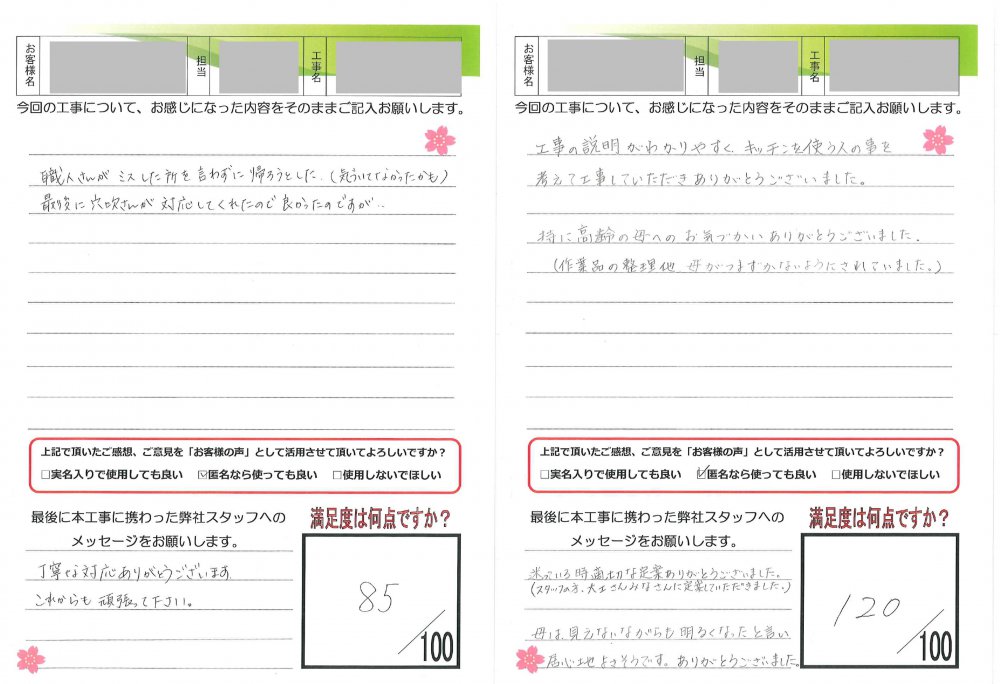 お客様名
担当
工事名
今回の工事について、お感じになった内容をそのままご記入お願いします。
職人さんが ミスした所を言わずに帰ろうとした.(気づいてなかったかも)
最後に穴吹さんが対応してくれたので良かったのですが..
上記で頂いたご感想、ご意見を「お客様の声」として活用させて頂いてよろしいですか？
□実名入りで使用しても良い ☑匿名なら使っても良い □使用しないでほしい
最後に本工事に携わった弊社スタッフへの
メッセージをお願いします。
丁寧な対応ありがとうございます
これからも頑張って下さい。
満足度は何点ですか？
85
/100
お客様名
担当
工事名
今回の工事について、お感じになった内容をそのままご記入お願いします。
工事の説明がわかりやすく、キッチンを使う人の事を
考えて工事していただきありがとうございました。
特に高齢の母へのお気づかいありがとうございました.
(作業品の整理他 母がつまずかないようにされていました。)
上記で頂いたご感想、ご意見を「お客様の声」として活用させて頂いてよろしいですか？
□実名入りで使用しても良い ☑匿名なら使っても良い □使用しないでほしい
最後に本工事に携わった弊社スタッフへの
メッセージをお願いします。
いる時適切な定業ありがとうございました。
(スタッフの方、大工さんみなさんに定業していただきました.)
母は、見えないながらも明るくなったと言い
居心地よさそうです。ありがとうございました。
満足度は何点ですか？
120
/100